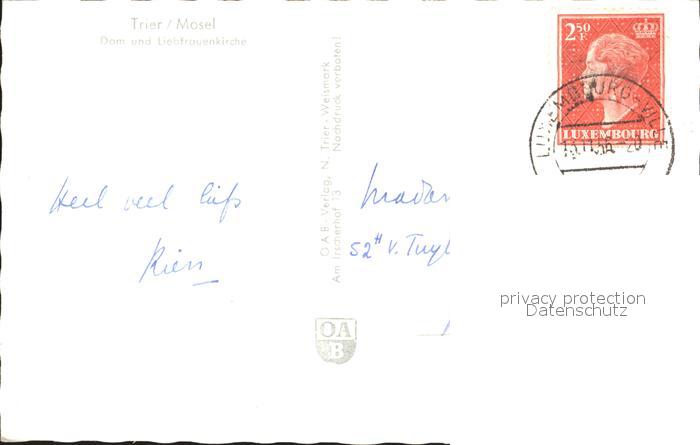 Trier / Mosel
Dom und Liebfrauenkirche
Heel veel liefs
Rien
OAB-Verlag, N. Trier-Weismark
Am Irscherhof 13 Nachdruck verboten!
OA
B
2 50 F.
LUXEMBOURG
LUXEMBOURG-VILLE
Madam
52" v. Tuyl
privacy protection
Datenschutz